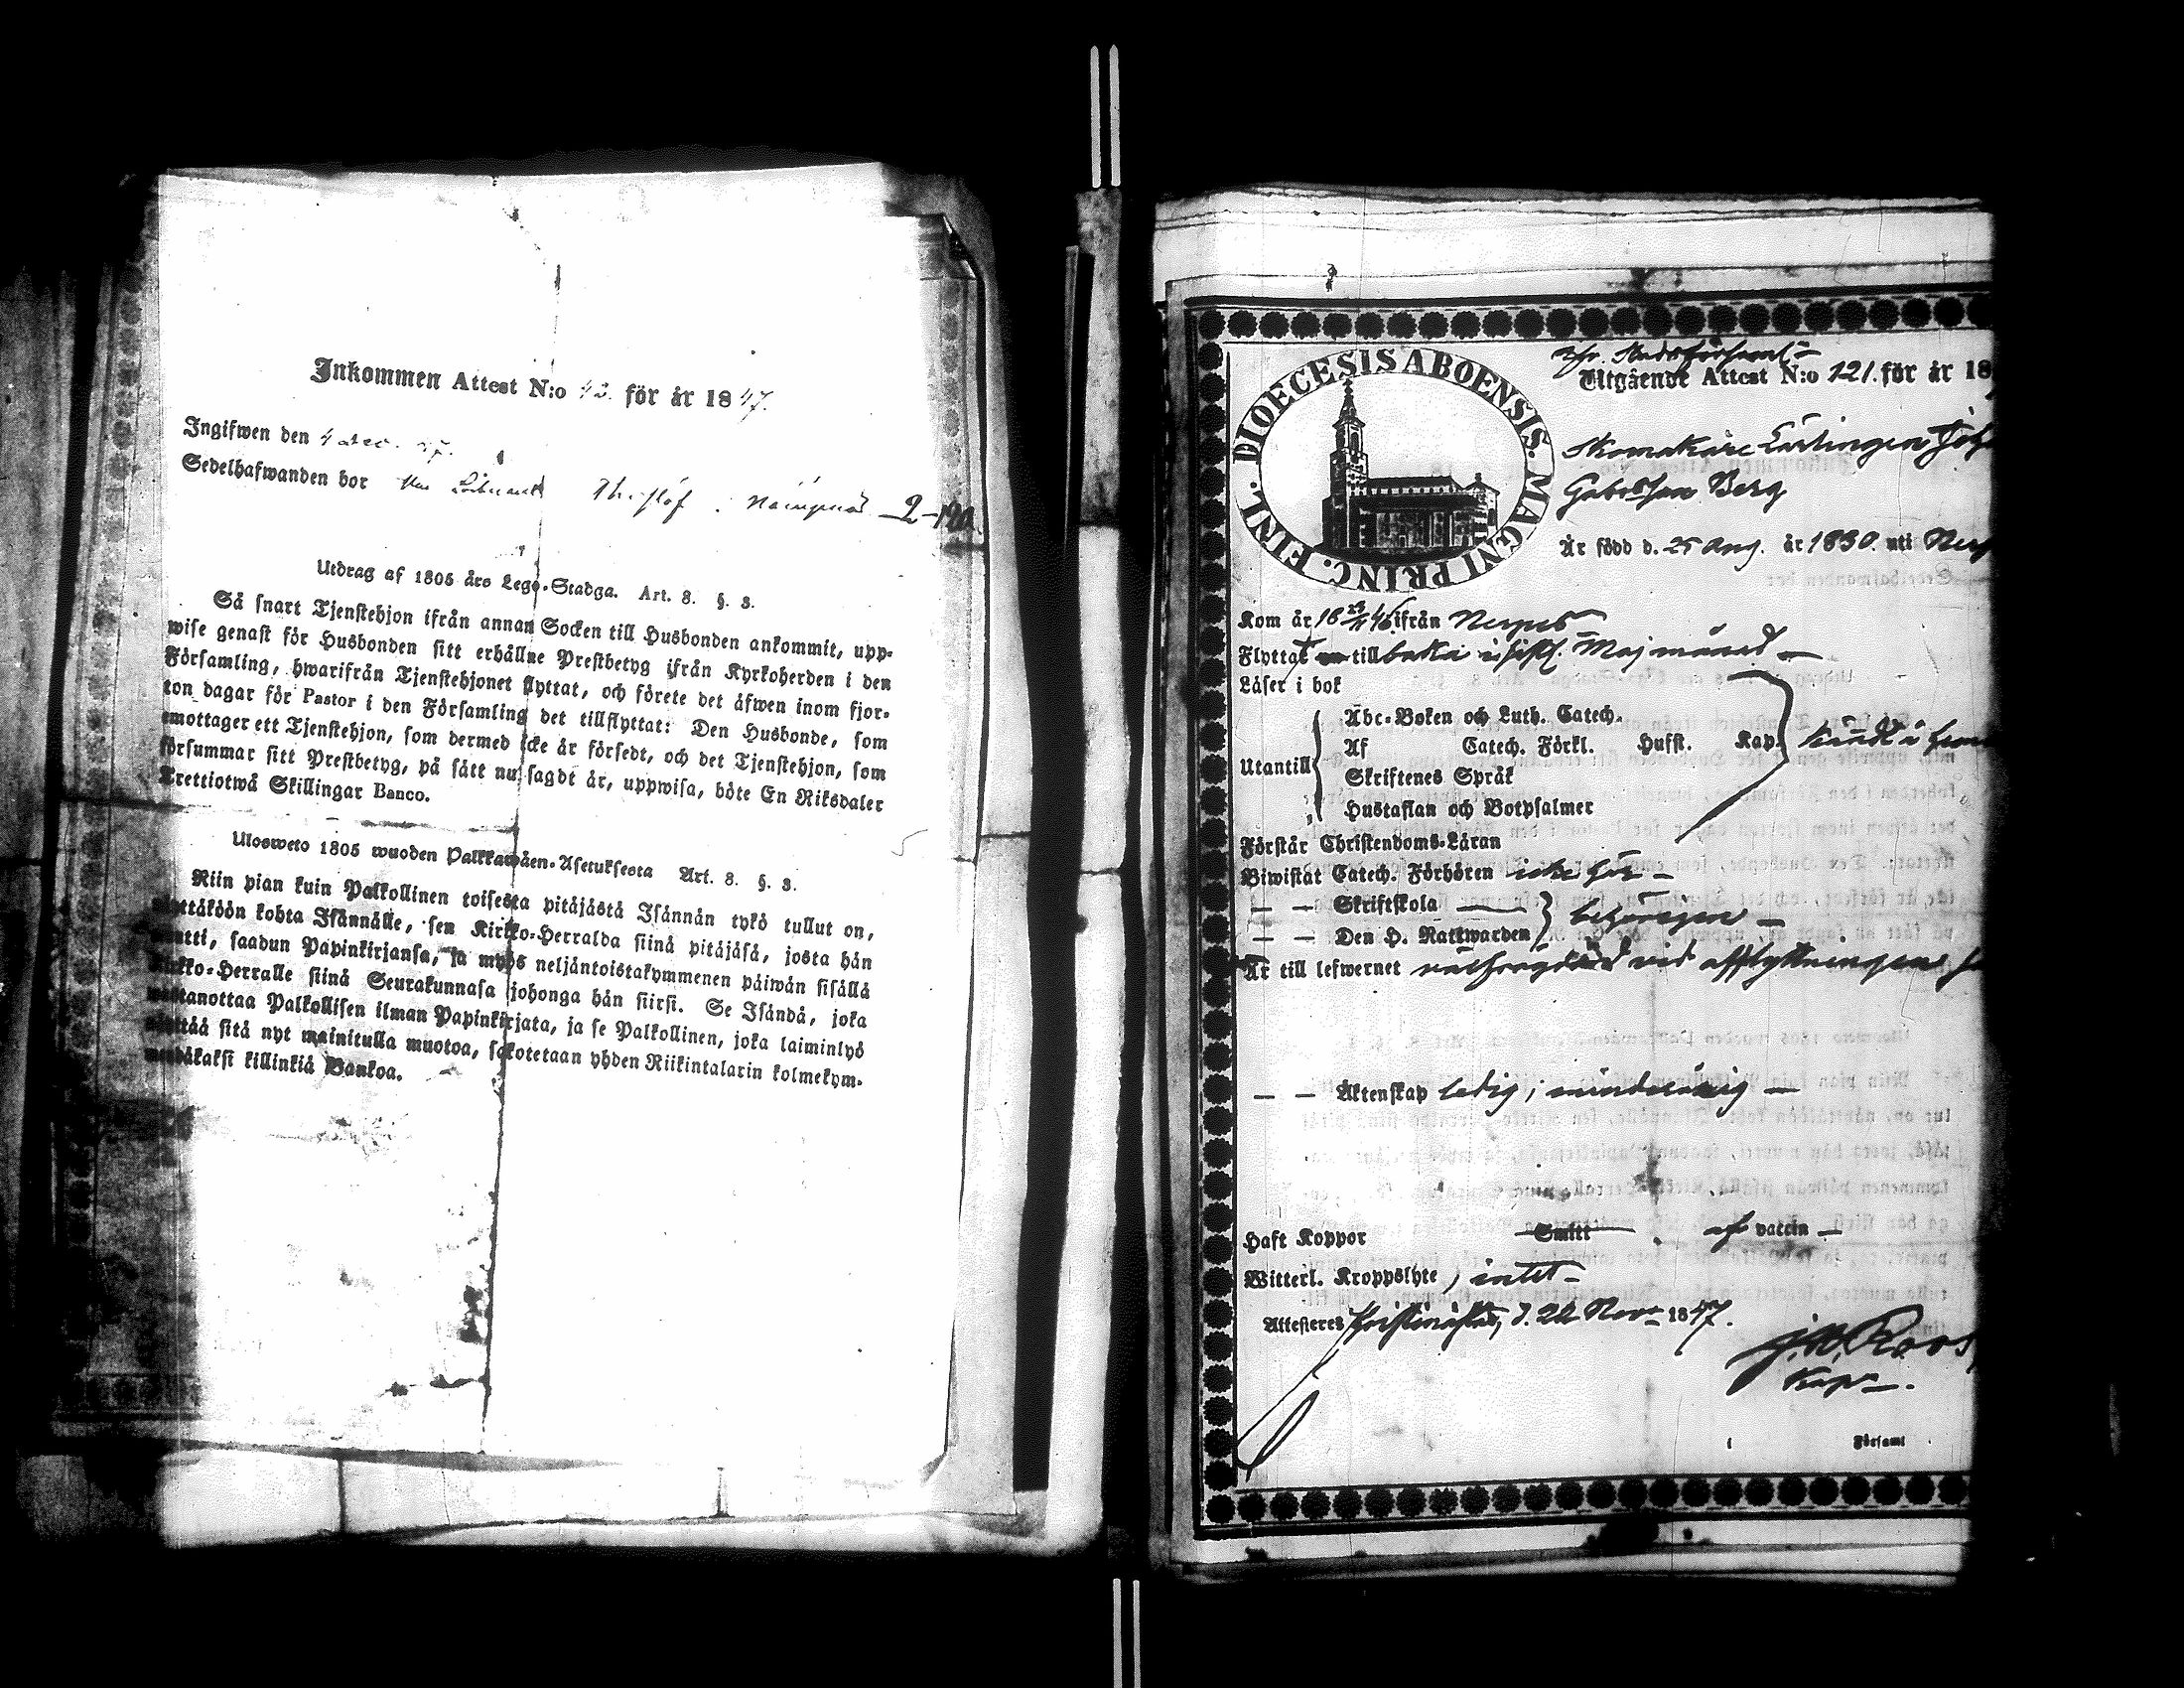 Inkommen Attest N:o 42. för år 1847.
Ingifwen den 4 dec. 47.
Sedelhafwanden bor
Utdrag af 1805 års Lego-Stadga. Art. 8. §. 3.
Så snart Tjenstehjon ifrån annan Socken till Husbonden ankommit, upp-
wise genast för Husbonden sitt erhållne Prestbetyg ifrån Kyrkoherden i den
Församling, hwarifrån Tjenstehjonet flyttat, och förete det äfwen inom fjor-
ton dagar för Pastor i den Församling det tillflyttat: Den Husbonde, som
emottager ett Tjenstehjon, som dermed icke är försedt, och det Tjenstehjon, som
försummar sitt Prestbetyg, på sätt nu sagdt är, uppwisa, böte En Riksdaler
Trettiotwå Skillingar Banco.
Ulosweto 1805 wuoden Palkkawäen-Asetuksesta Art. 8. §. 3.
Niin pian kuin Palkollinen toisesta pitäjästä Isännän tykö tullut on,
näyttäköön kohta Isännälle, sen Kirkko-Herralda siinä pitäjäsä, josta hän
muutti, saadun Papinkirjansa, ja myös neljäntoistakymmenen päiwän sisällä
Kirkko-Herralle siinä Seurakunnasa johonga hän siirsi. Se Isändä, joka
wastanottaa Palkollisen ilman Papinkirjata, ja se Palkollinen, joka laiminlyö
näyttää sitä nyt mainitulla muotoa, sakotetaan yhden Riikintalarin kolmekym-
mendäkaksi killinkiä Bankoa.
DIOECESIS ABOENSIS. MAGNI PRINC. FINL.
Utgående Attest N:o 121. för år 18
Skomakare Lärlingen
Gabrielsson Berg
Är född d. 25 Aug. år 1830. uti
Kom år 18 23/11 46 ifrån Nerpes
Flyttat till baka i sistl. Maj månad
Läser i bok
Utantill
Abc-Boken och Luth. Catech.
Af Catech. Förkl. Hufst. Kap.
Skriftenes Språk
Hustaflan och Botpsalmer
Förstår Christendoms-Läran
Biwistat Catech. Förhören icke här
— — Skriftskola
— — Den H. Nattwarden behörigen
Är till lefwernet välfrägdad vid afflyttningen
— — Äktenskap ledig; minderårig
Haft Koppor Smitt af vaccin
Witterl. Kroppslyte, intet
Attesteres Christinestad, d. 22 Nov. 1847.
J. W. Roos
Kapn.
i Församl